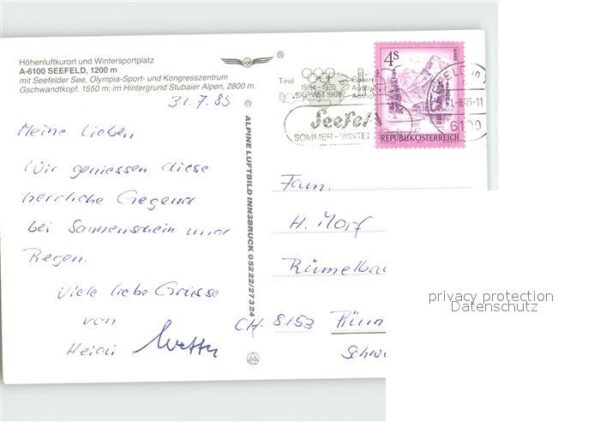 Höhenluftkurort und Wintersportplatz
A-6100 SEEFELD, 1200 m
mit Seefelder See, Olympia-Sport- und Kongresszentrum
Gschwandtkopf, 1550 m; im Hintergrund Stubaier Alpen, 2800 m.
31.7.85
Meine Lieben
Wir geniessen diese
herrliche Gegend
bei Sonnenschein und
Regen.
Viele liebe Grüsse
von
Heidi
ALPINE LUFTBILD INNSBRUCK 05222/27324
®
Tirol
1964-1976
Seefeld
SOMMER-WINTER
4S
REPUBLIK ÖSTERREICH
6100
Fam.
H. Morf
CH. 8153
privacy protection
Datenschutz